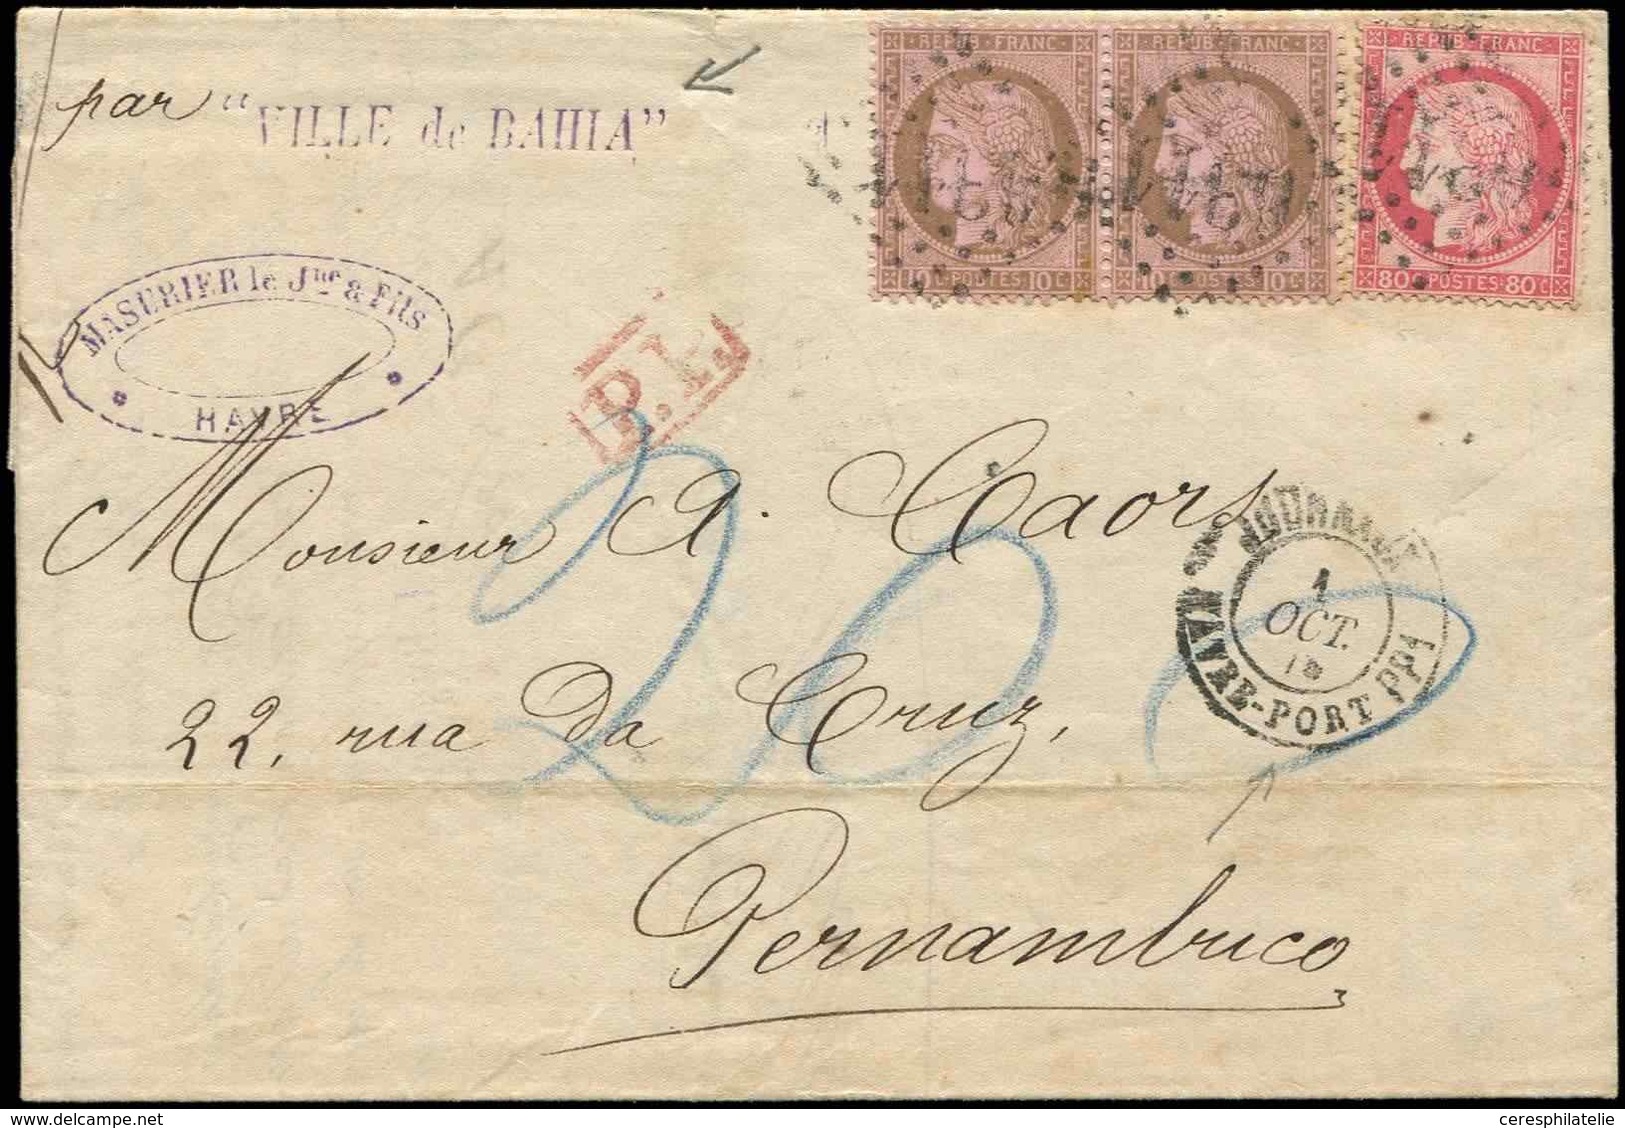 par "VILLE de BAHIA"
REPUB. FRANC.
10 C. POSTES. 10 C.
REPUB. FRANC.
10 C. POSTES. 10 C.
REPUB. FRANC.
80 C. POSTES. 80 C.
MASURIER le Jne & FILS
HAVRE
P.P.
Monsieur A. Caors
22, rua da Cruz,
Pernambuco
JOURNAUX
1
OCT.
HAVRE-PORT PP1
20
ceresphilatelie.com